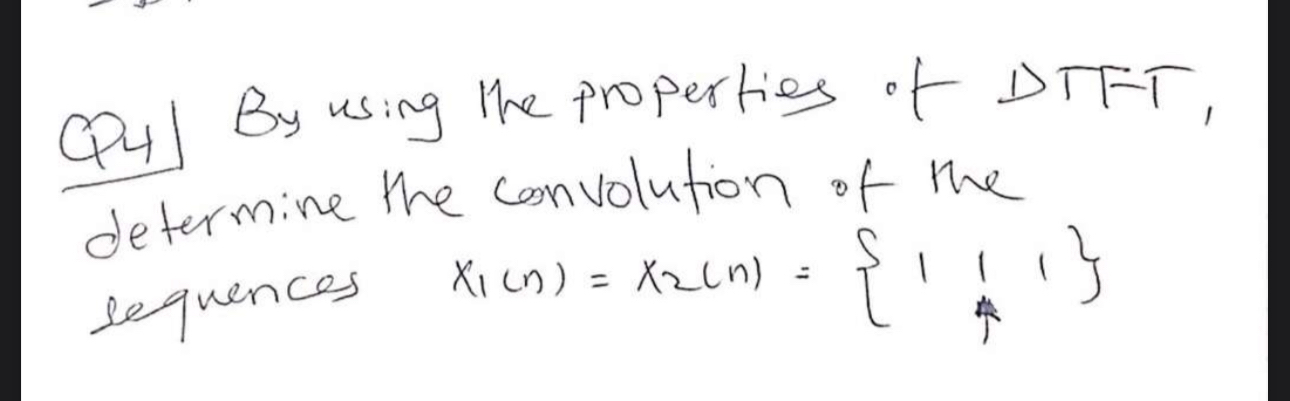 Q4| By using the properties of DTFT,
determine the convolution of the
sequences x₁(n) = x₂(n) = { 1 1 1 }
↑